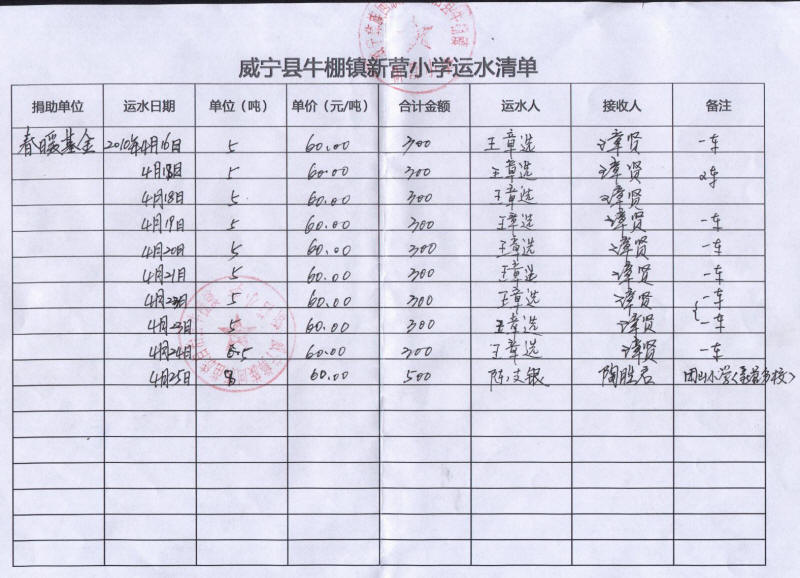 威宁县牛棚镇新营小学运水清单
捐助单位 运水日期 单位（吨） 单价（元/吨） 合计金额 运水人 接收人 备注
春暖基金 2010年4月16日 5 60.00 300 王章选 谭贤 一车
4月18日 5 60.00 300 王章选 谭贤 2车
4月18日 5 60.00 300 王章选 谭贤
4月19日 5 60.00 300 王章选 谭贤 一车
4月20日 5 60.00 300 王章选 谭贤 一车
4月21日 5 60.00 300 王章选 谭贤 一车
4月23日 5 60.00 300 王章选 谭贤 一车
4月23日 5 60.00 300 王章选 谭贤 一车
4月24日 5 60.00 300 王章选 谭贤 一车
4月25日 8 60.00 500 陈文银 陶胜君 团山小学